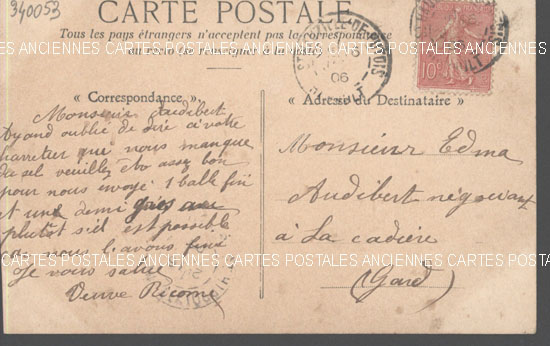 340053
CARTE POSTALE
Tous les pays étrangers n'acceptent pas la correspondance
au recto
« Correspondance »
« Adresse du Destinataire »
Monsieur Audibert
Ayand oublié de dire à votre
charretier que nous manque
du sel veuillez etre assez bon
pour nous envoyé 1 balle fin
et une demi gros au
plutot s'il est possible
car nous l'avons fini
Je vous salue
Veuve Ricome
Monsieur Edma
Audibert négociant
à La cadière
(Gard)
06
10c
ANCIENNES CARTES POSTALES ANCIENNES CARTES POSTALES ANCIENNES
CARTES POSTALES ANCIENNES CARTES POSTALES ANCIENNES CARTES POSTALES